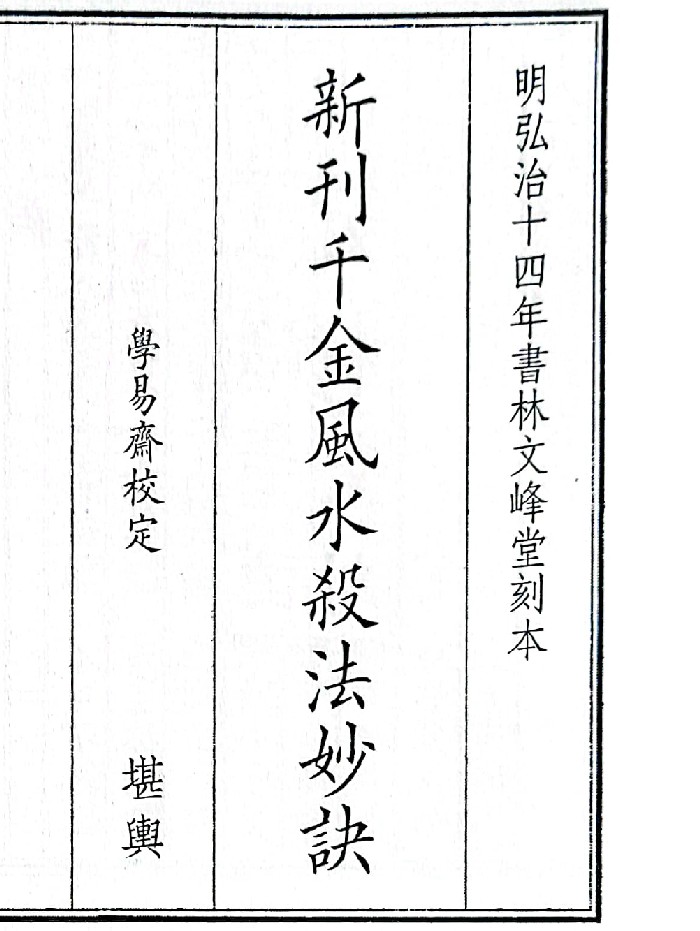 明弘治十四年書林文峰堂刻本
新刊千金風水殺法妙訣
學易齋校定
堪輿